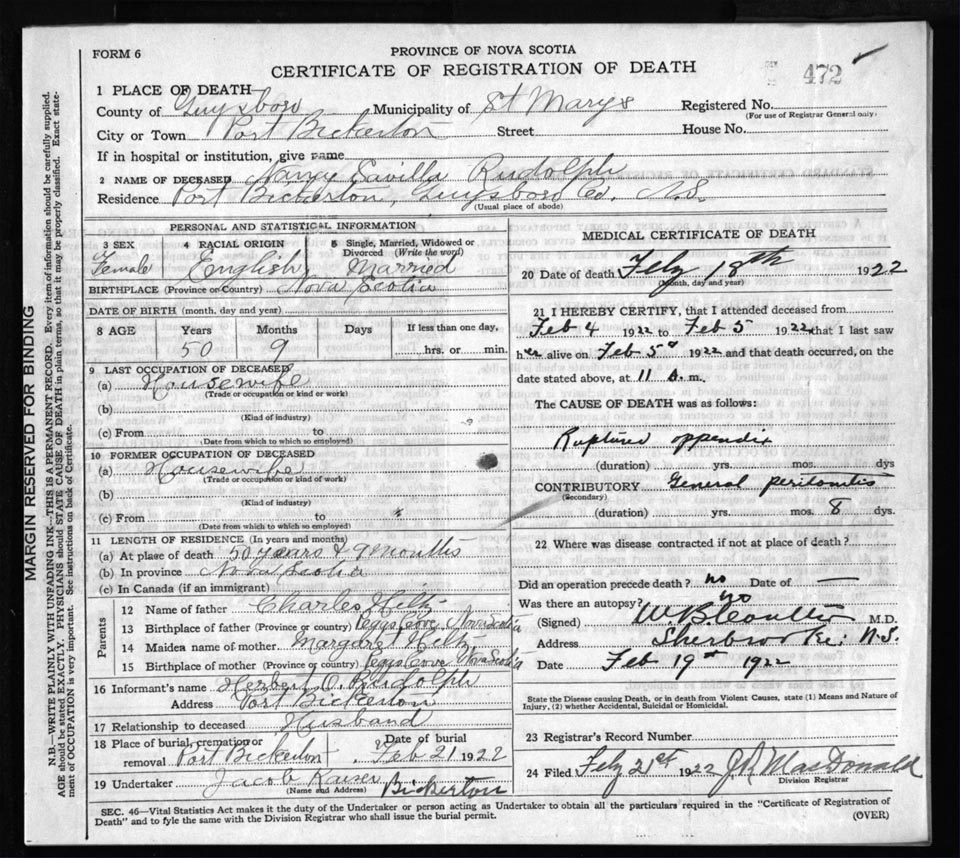 FORM 6
PROVINCE OF NOVA SCOTIA
CERTIFICATE OF REGISTRATION OF DEATH
472
1 PLACE OF DEATH
County of Guysboro Municipality of St Marys Registered No.
(For use of Registrar General only)
City or Town Port Bickerton Street House No.
If in hospital or institution, give name
2 NAME OF DECEASED Nancy Savilla Rudolph
Residence Port Bickerton, Guysboro Co. N.S.
(Usual place of abode)
MARGIN RESERVED FOR BINDING
N.B.—WRITE PLAINLY WITH UNFADING INK—THIS IS A PERMANENT RECORD. Every item of information should be carefully supplied.
AGE should be stated EXACTLY. PHYSICIANS should STATE CAUSE OF DEATH in plain terms, so that it may be properly classified. Exact state-
ment of OCCUPATION is very important. See instructions on back of Certificate.
PERSONAL AND STATISTICAL INFORMATION
3 SEX 4 RACIAL ORIGIN 5 Single, Married, Widowed or
Divorced (Write the word)
Female English Married
BIRTHPLACE (Province or Country) Nova Scotia
DATE OF BIRTH (month, day and year)
8 AGE Years Months Days If less than one day,
50 9 hrs. or min.
9 LAST OCCUPATION OF DECEASED
(a) Housewife
(Trade or occupation or kind or work)
(b)
(Kind of industry)
(c) From to
(Date from which to which so employed)
10 FORMER OCCUPATION OF DECEASED
(a) Housewife
(Trade or occupation or kind of work)
(b)
(Kind of industry)
(c) From to
(Date from which to which so employed)
11 LENGTH OF RESIDENCE (In years and months)
(a) At place of death 50 years & 9 Months
(b) In province Nova Scotia
(c) In Canada (if an immigrant)
Parents
12 Name of father Charles Hilts
13 Birthplace of father (Province or country) Pegys Cove Nova Scotia
14 Maiden name of mother Margaret
15 Birthplace of mother (Province or country) Pegys Cove Nova Scotia
16 Informant's name Herbert O. Rudolph
Address Port Bickerton
17 Relationship to deceased Husband
18 Place of burial, cremation or Date of burial
removal Port Bickerton Feb 21 1922
19 Undertaker Jacob Kaiser Bickerton
(Name and Address)
MEDICAL CERTIFICATE OF DEATH
20 Date of death Feby 18th 1922
(Month, day and year)
21 I HEREBY CERTIFY, that I attended deceased from
Feb 4 1922 to Feb 5 1922 that I last saw
her alive on Feb 5 1922 and that death occurred, on the
date stated above, at 11 a.m.
The CAUSE OF DEATH was as follows:
Ruptured appendix
(duration) yrs. mos. dys
CONTRIBUTORY General peritonitis
(Secondary)
(duration) yrs. mos. 8 dys.
22 Where was disease contracted if not at place of death?
Did an operation precede death? no Date of —
Was there an autopsy? no
(Signed) M.D.
Address Sherbrooke: N.S.
Date Feb 19th 1922
State the Disease causing Death, or in death from Violent Causes, state (1) Means and Nature of
Injury, (2) whether Accidental, Suicidal or Homicidal.
23 Registrar's Record Number
24 Filed Feby 21st 1922 MacDonald
Division Registrar
SEC. 46—Vital Statistics Act makes it the duty of the Undertaker or person acting as Undertaker to obtain all the particulars required in the "Certificate of Registration of
Death" and to fyle the same with the Division Registrar who shall issue the burial permit.
(OVER)